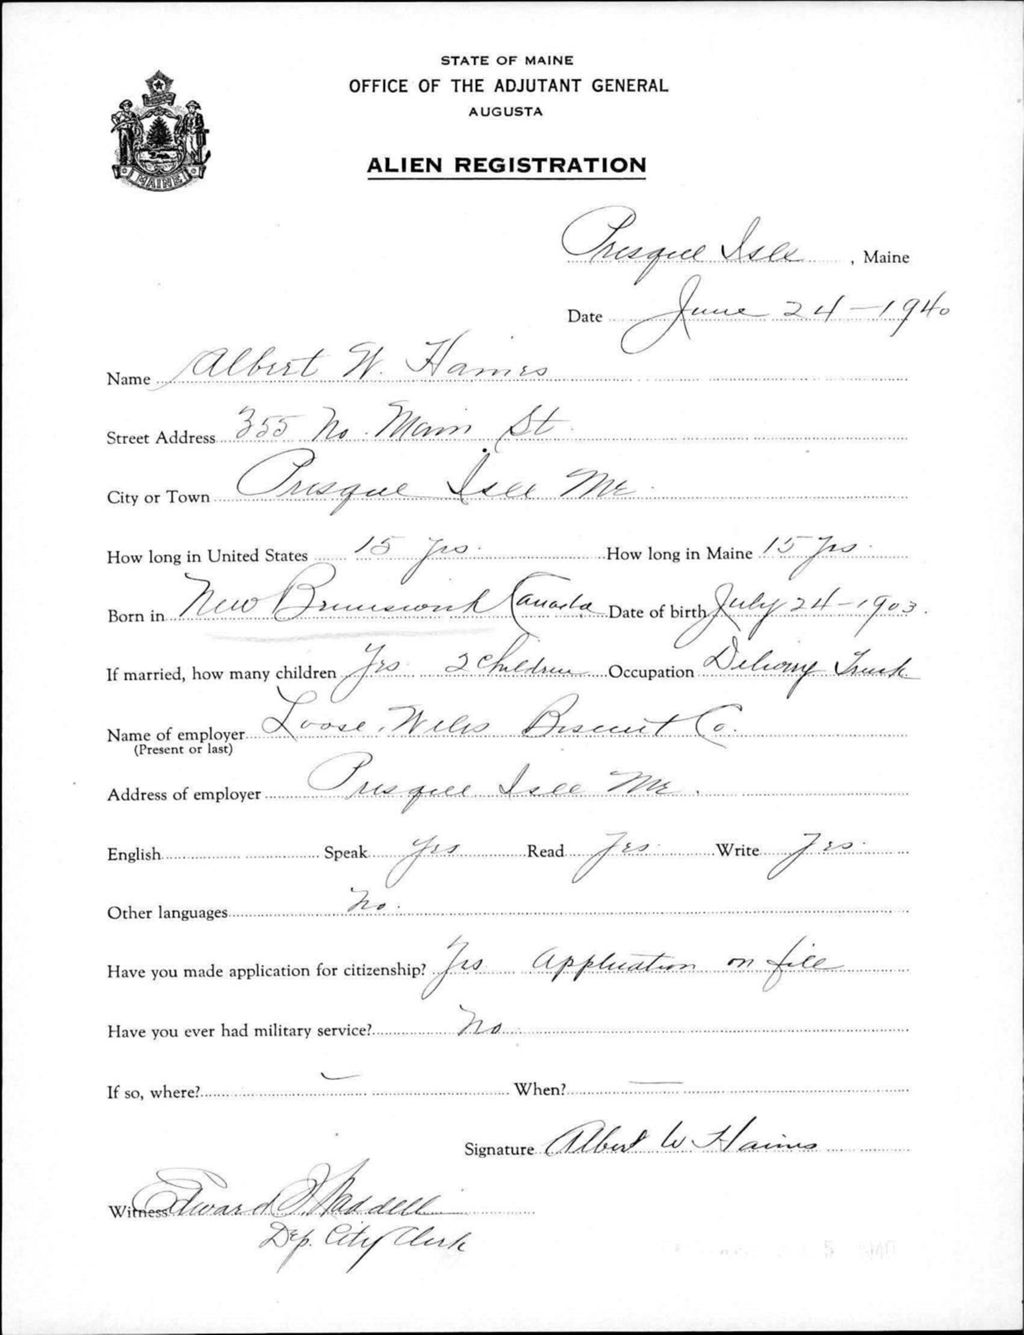 STATE OF MAINE
OFFICE OF THE ADJUTANT GENERAL
AUGUSTA
MAINE
ALIEN REGISTRATION
Presque Isle, Maine
Date June 24-1940
Name Albert W. Haines
Street Address 355 No. Main St
City or Town Presque Isle Me
How long in United States 15 yrs. How long in Maine 15 yrs.
Born in New Brunswick Canada Date of birth July 24-1903.
If married, how many children Yes 2 Children Occupation Delivery Truck
Name of employer Loose, Wiles Biscuit Co.
(Present or last)
Address of employer Presque Isle Me.
English Speak yes Read Yes Write Yes.
Other languages No.
Have you made application for citizenship? Yes Application on file
Have you ever had military service? No
If so, where? — When? —
Signature Albert W Haines
Witness Edward Waddell
Dep. City Clerk